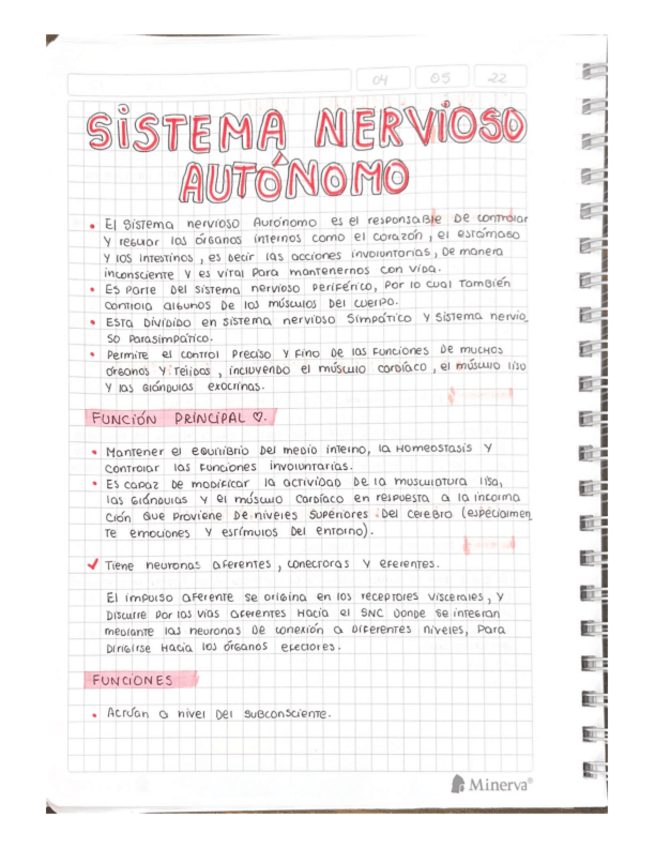 04 05 22
SISTEMA NERVIOSO
AUTÓNOMO
• El Sistema nervioso Autónomo es el responsable de controlar
y regular los órganos internos como el corazón, el estómago
y los intestinos, es decir las acciones involuntarias, de manera
inconsciente y es vital para mantenernos con vida.
• Es parte del sistema nervioso periférico, por lo cual también
controla algunos de los músculos del cuerpo.
• Esta dividido en sistema nervioso simpático y sistema nervio
so parasimpático.
• Permite el control preciso y fino de las funciones de muchos
órganos y tejidos, incluyendo el músculo cardíaco, el músculo liso
y las glándulas exocrinas.
FUNCIÓN PRINCIPAL ♡.
• Mantener el equilibrio del medio interno, la homeostasis y
controlar las funciones involuntarias.
• Es capaz de modificar la actividad de la musculatura lisa,
las glándulas y el músculo cardíaco en respuesta a la informa
ción que proviene de niveles superiores del cerebro (especialmen
te emociones y estímulos del entorno).
✓ Tiene neuronas aferentes, conectoras y eferentes.
El impulso aferente se origina en los receptores viscerales, y
discurre por las vías aferentes hacia el SNC donde se integran
mediante las neuronas de conexión a diferentes niveles, para
dirigirse hacia los órganos efectores.
FUNCIONES
• Actúan a nivel del subconsciente.
Minerva®